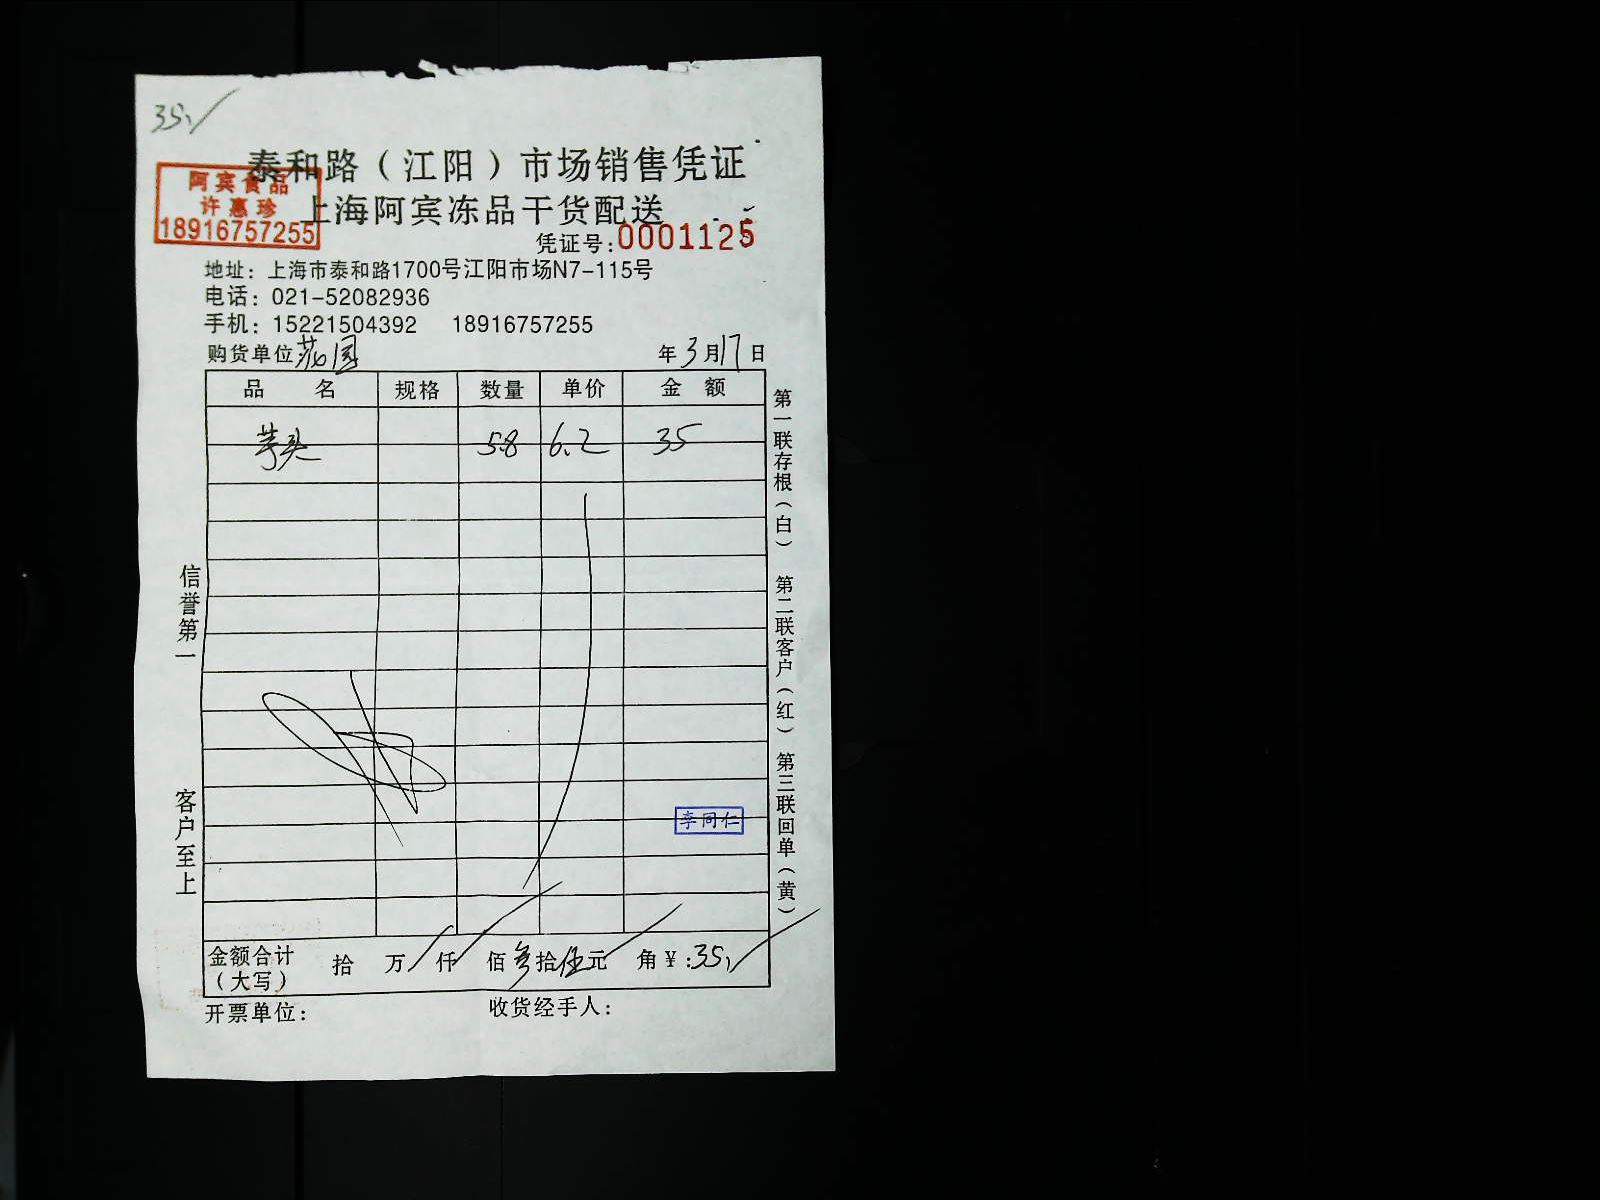 35,
泰和路（江阳）市场销售凭证
阿宾食品
许惠珍
18916757255
上海阿宾冻品干货配送
凭证号:0001125
地址：上海市泰和路1700号江阳市场N7-115号
电话：021-52082936
手机：15221504392 18916757255
购货单位 花园 年 3 月 17 日
品 名 规格 数量 单价 金 额
芋头 5.8 6.2 35
第一联存根（白） 第二联客户（红） 第三联回单（黄）
信誉第一 客户至上
李同仁
金额合计（大写） 拾 万 仟 佰 叁 拾 伍 元 角 ¥:35,
开票单位： 收货经手人：